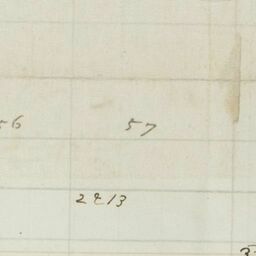 56 57
2813
3